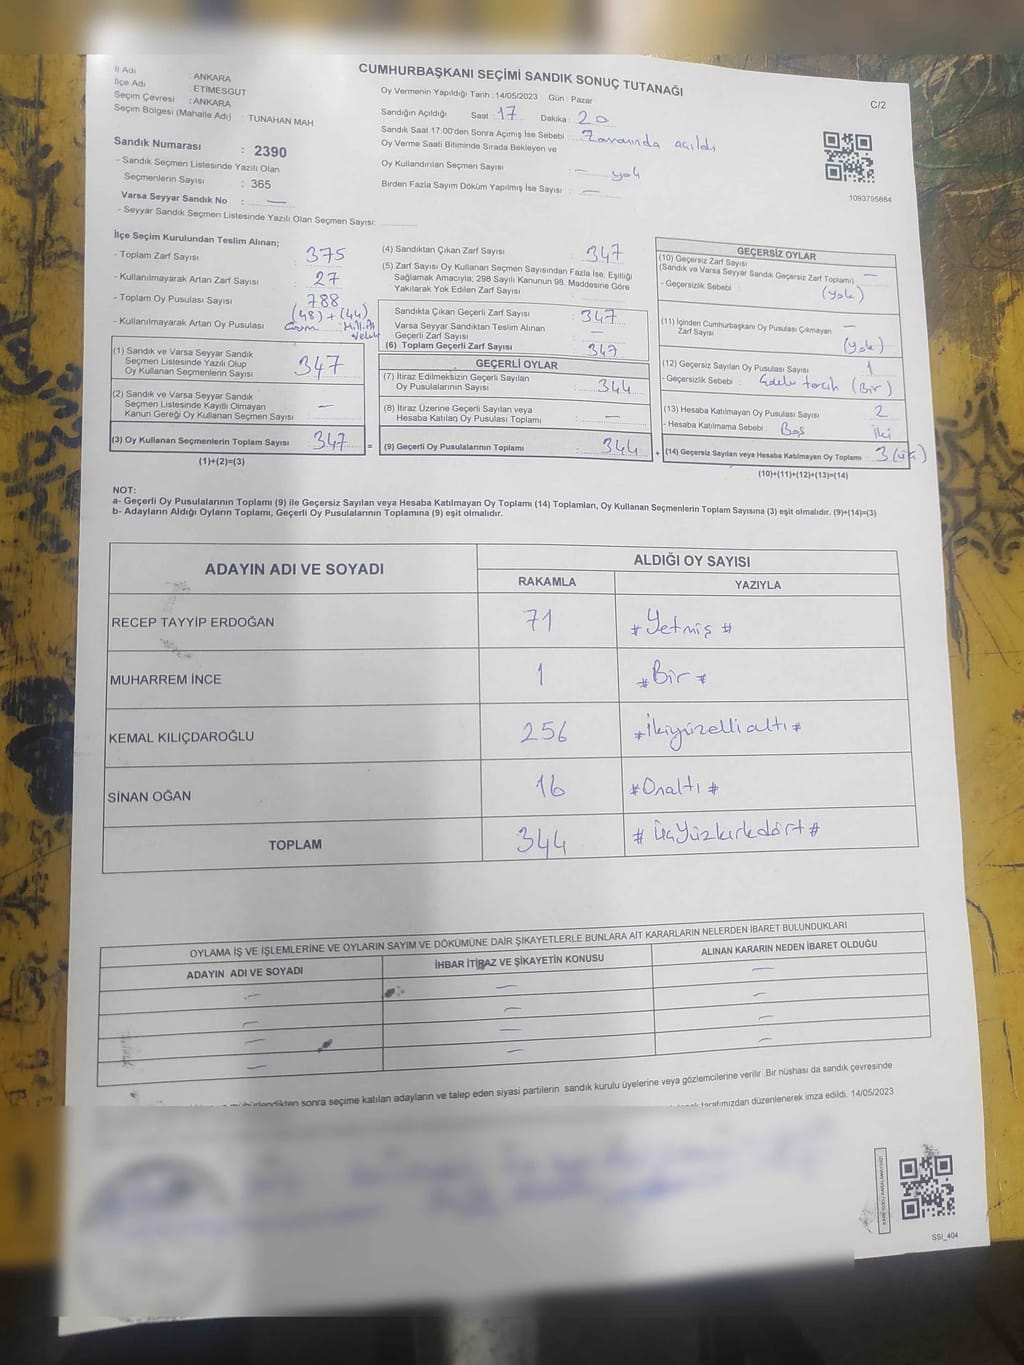 CUMHURBAŞKANI SEÇİMİ SANDIK SONUÇ TUTANAĞI
C/2
İl Adı : ANKARA
İlçe Adı : ETİMESGUT
Seçim Çevresi : ANKARA
Seçim Bölgesi (Mahalle Adı) : TUNAHAN MAH.
Sandık Numarası : 2390
- Sandık Seçmen Listesinde Yazılı Olan
Seçmenlerin Sayısı : 365
Varsa Seyyar Sandık No : —
- Seyyar Sandık Seçmen Listesinde Yazılı Olan Seçmen Sayısı:
Oy Vermenin Yapıldığı Tarih :14/05/2023 Gün : Pazar
Sandığın Açıldığı Saat : 17 Dakika : 20
Sandık Saat 17.00'den Sonra Açımış İse Sebebi : Zamanında açıldı
Oy Verme Saati Bitiminde Sırada Bekleyen ve
Oy Kullandırılan Seçmen Sayısı : — yok
Birden Fazla Sayım Döküm Yapılmış İse Sayısı : —
1093795884
İlçe Seçim Kurulundan Teslim Alınan;
- Toplam Zarf Sayısı : 375
- Kullanılmayarak Artan Zarf Sayısı : 27
- Toplam Oy Pusulası Sayısı : 788
(48) + (44)
- Kullanılmayarak Artan Oy Pusulası
(1) Sandık ve Varsa Seyyar Sandık
Seçmen Listesinde Yazılı Olup
Oy Kullanan Seçmenlerin Sayısı : 347
(2) Sandık ve Varsa Seyyar Sandık
Seçmen Listesinde Kayıtlı Olmayan
Kanun Gereği Oy Kullanan Seçmen Sayısı : —
(3) Oy Kullanan Seçmenlerin Toplam Sayısı : 347 =
(1)+(2)=(3)
(4) Sandıktan Çıkan Zarf Sayısı : 347
(5) Zarf Sayısı Oy Kullanan Seçmen Sayısından Fazla İse, Eşitliği
Sağlamak Amacıyla; 298 Sayılı Kanunun 98. Maddesine Göre
Yakılarak Yok Edilen Zarf Sayısı :
Sandıkta Çıkan Geçerli Zarf Sayısı : 347
Varsa Seyyar Sandıktan Teslim Alınan
Geçerli Zarf Sayısı : —
(6) Toplam Geçerli Zarf Sayısı : 347
GEÇERLİ OYLAR
(7) İtiraz Edilmeksizin Geçerli Sayılan
Oy Pusulalarının Sayısı : 344
(8) İtiraz Üzerine Geçerli Sayılan veya
Hesaba Katılan Oy Pusulası Toplamı : —
(9) Geçerli Oy Pusulalarının Toplamı : 344 +
GEÇERSİZ OYLAR
(10) Geçersiz Zarf Sayısı
(Sandık ve Varsa Seyyar Sandık Geçersiz Zarf Toplamı) : —
- Geçersizlik Sebebi : (yok)
(11) İçinden Cumhurbaşkanı Oy Pusulası Çıkmayan
Zarf Sayısı : —
(yok)
(12) Geçersiz Sayılan Oy Pusulası Sayısı : 1
- Geçersizlik Sebebi : tercih (Bir)
(13) Hesaba Katılmayan Oy Pusulası Sayısı : 2
- Hesaba Katılmama Sebebi : Boş İki
(14) Geçersiz Sayılan veya Hesaba Katılmayan Oy Toplamı : 3 (üç)
(10)+(11)+(12)+(13)=(14)
NOT:
a- Geçerli Oy Pusulalarının Toplamı (9) ile Geçersiz Sayılan veya Hesaba Katılmayan Oy Toplamı (14) Toplamları, Oy Kullanan Seçmenlerin Toplam Sayısına (3) eşit olmalıdır. (9)+(14)=(3)
b- Adayların Aldığı Oyların Toplamı, Geçerli Oy Pusulalarının Toplamına (9) eşit olmalıdır.
ADAYIN ADI VE SOYADI ALDIĞI OY SAYISI
RAKAMLA YAZIYLA
RECEP TAYYİP ERDOĞAN 71 # Yetmiş #
MUHARREM İNCE 1 # Bir #
KEMAL KILIÇDAROĞLU 256 # İkiyüzellialtı #
SİNAN OĞAN 16 # Onaltı #
TOPLAM 344 # Üçyüzkırkdört #
OYLAMA İŞ VE İŞLEMLERİNE VE OYLARIN SAYIM VE DÖKÜMÜNE DAİR ŞİKAYETLERLE BUNLARA AİT KARARLARIN NELERDEN İBARET BULUNDUKLARI
ADAYIN ADI VE SOYADI İHBAR İTİRAZ VE ŞİKAYETİN KONUSU ALINAN KARARIN NEDEN İBARET OLDUĞU
— — —
— — —
— — —
— — —
sonra seçime katılan adayların ve talep eden siyasi partilerin sandık kurulu üyelerine veya gözlemcilerine verilir .Bir nüshası da sandık çevresinde
tarafımızdan düzenlenerek imza edildi. 14/05/2023
SSİ_404